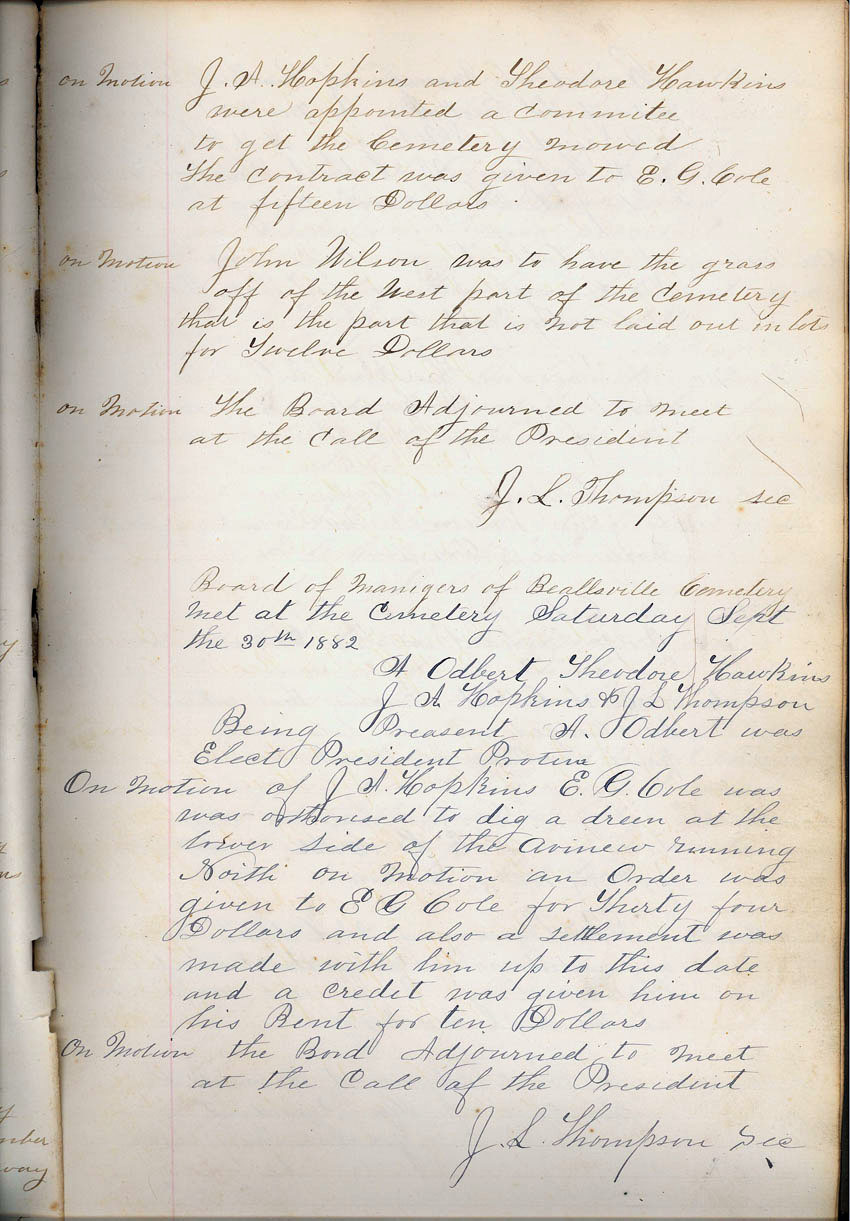 on Motion J. A. Hopkins and Theodore Hawkins
were appointed a commitee
to get the Cemetery mowed
the contract was given to E. G. Cole
at fifteen Dollars
on Motion John Wilson was to have the grass
off of the West part of the Cemetery
that is the part that is not laid out in lots
for Twelve Dollars
on Motion the Board Adjourned to meet
at the Call of the President
J. L. Thompson sec
Board of Manigers of Beallsville Cemetery
met at the Cemetery Saturday Sept
the 30th 1882
A Odbert Theodore Hawkins
J A Hopkins & J L Thompson
Being Preasent A. Odbert was
Elect President Protem
On Motion of J A. Hopkins E. G. Cole was
was to dig a dreen at the
lower side of the avinew running
North on Motion an Order was
given to E G Cole for Thirty four
Dollars and also a settlement was
made with him up to this date
and a credit was given him on
his Rent for ten Dollars
On Motion the Bord Adjourned to meet
at the Call of the President
J. L. Thompson Sec
mber
way